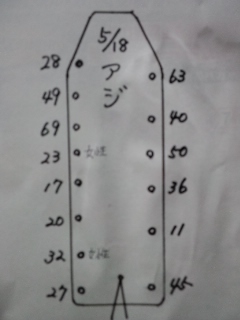 5/18
アジ
28
63
49
40
69
50
23 女性
17
36
20
11
32 女性
27
45